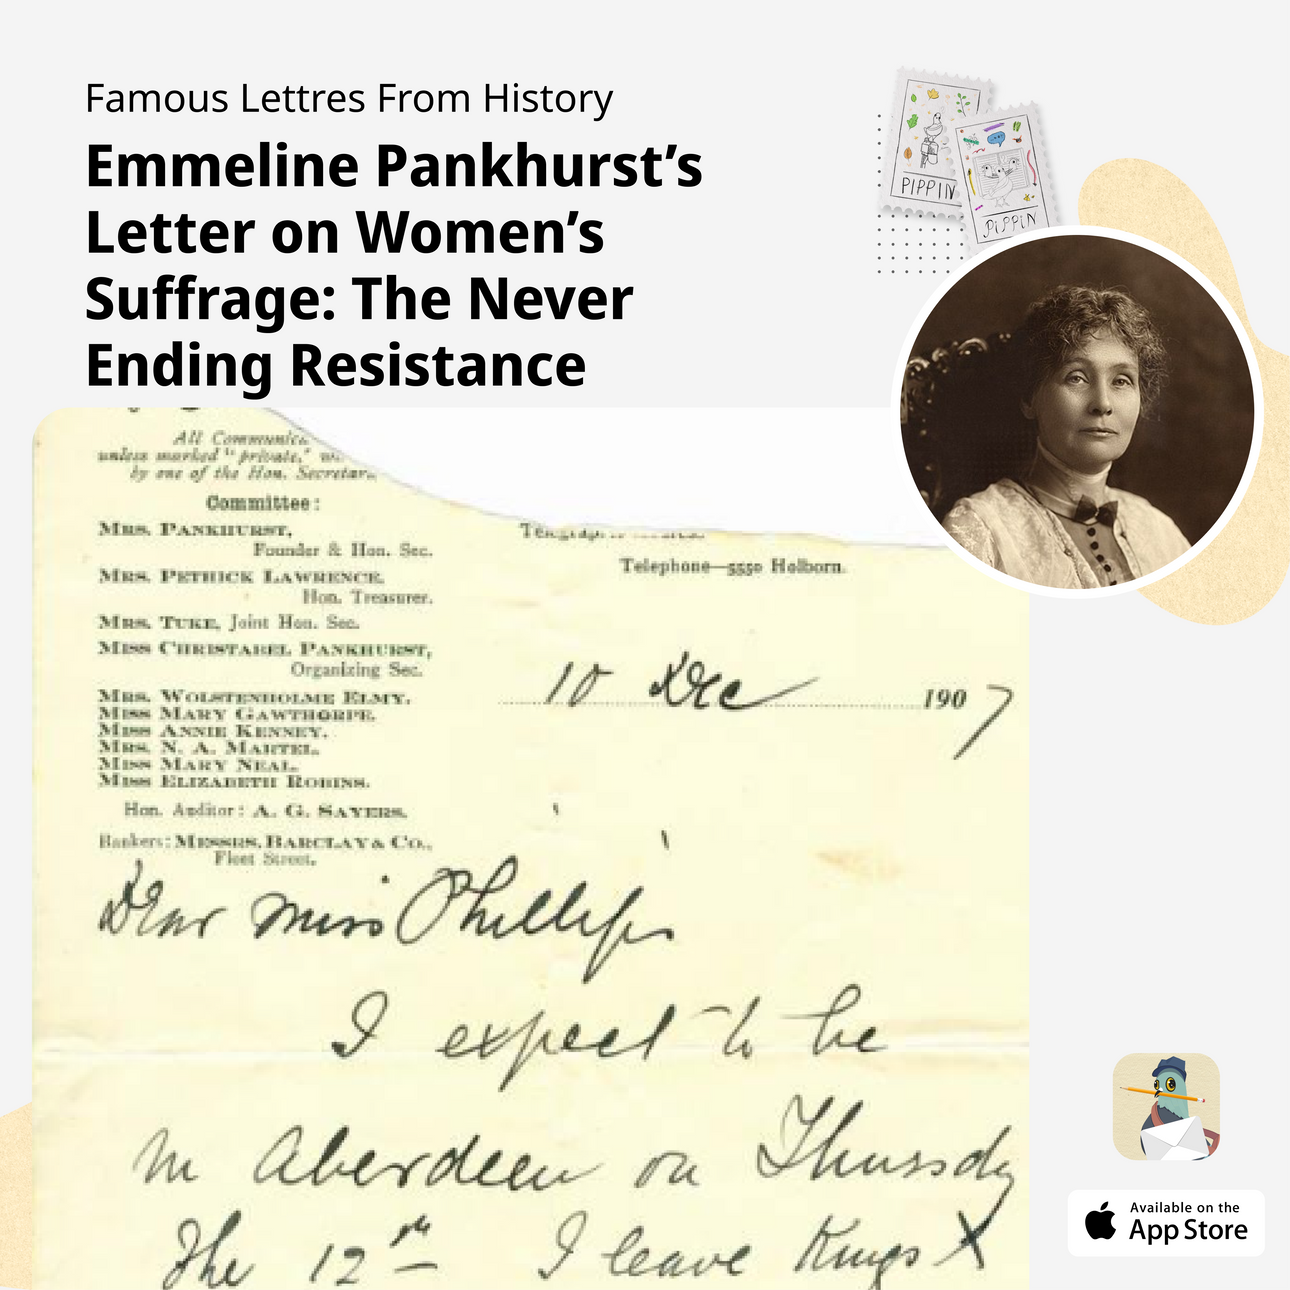 Famous Lettres From History
Emmeline Pankhurst’s
Letter on Women’s
Suffrage: The Never
Ending Resistance
PIPPIN
PIPPIN
All Communic
unless marked "private,"
by one of the Hon. Secretar
Committee:
MRS. PANKHURST,
Founder & Hon. Sec.
MRS. PETHICK LAWRENCE,
Hon. Treasurer.
MRS. TUKE, Joint Hon. Sec.
MISS CHRISTABEL PANKHURST,
Organizing Sec.
MRS. WOLSTENHOLME ELMY.
MISS MARY GAWTHORPE.
MISS ANNIE KENNEY.
MRS. N. A. MARTEL.
MISS MARY NEAL.
MISS ELIZABETH ROBINS.
Hon. Auditor: A. G. SAYERS.
Bankers: MESSRS. BARCLAY & CO.,
Fleet Street.
Telephone—5550 Holborn.
10 Dec 1907
Dear Miss Phillips
I expect to be
in Aberdeen on Thursday
the 12th I leave Kings X
Available on the
App Store